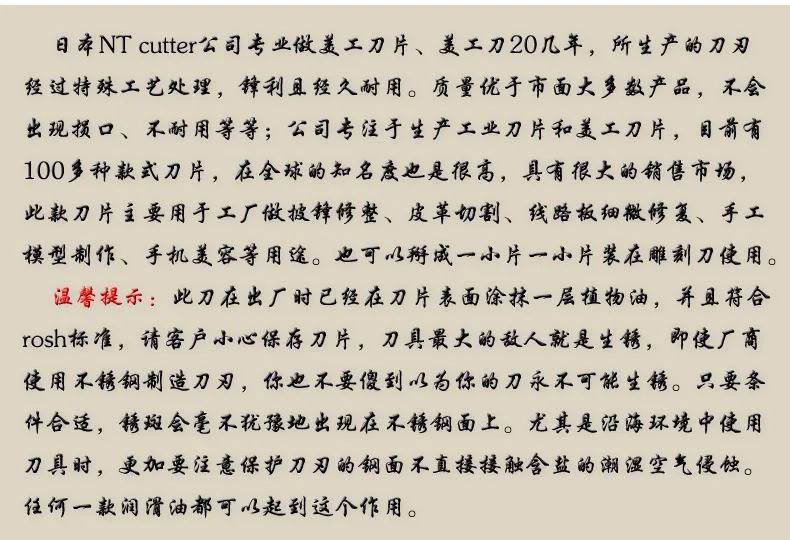 日本NT cutter公司专业做美工刀片、美工刀20几年，所生产的刀刃
经过特殊工艺处理，锋利且经久耐用。质量优于市面大多数产品，不会
出现损口、不耐用等等；公司专注于生产工业刀片和美工刀片，目前有
100多种款式刀片，在全球的知名度也是很高，具有很大的销售市场，
此款刀片主要用于工厂做披锋修整、皮革切割、线路板细微修复、手工
模型制作、手机美容等用途。也可以掰成一小片一小片装在雕刻刀使用。
温馨提示：此刀在出厂时已经在刀片表面涂抹一层植物油，并且符合
rosh标准，请客户小心保存刀片，刀具最大的敌人就是生锈，即使厂商
使用不锈钢制造刀刃，你也不要傻到以为你的刀永不可能生锈。只要条
件合适，锈斑会毫不犹豫地出现在不锈钢面上。尤其是沿海环境中使用
刀具时，更加要注意保护刀刃的钢面不直接接触含盐的潮湿空气侵蚀。
任何一款润滑油都可以起到这个作用。